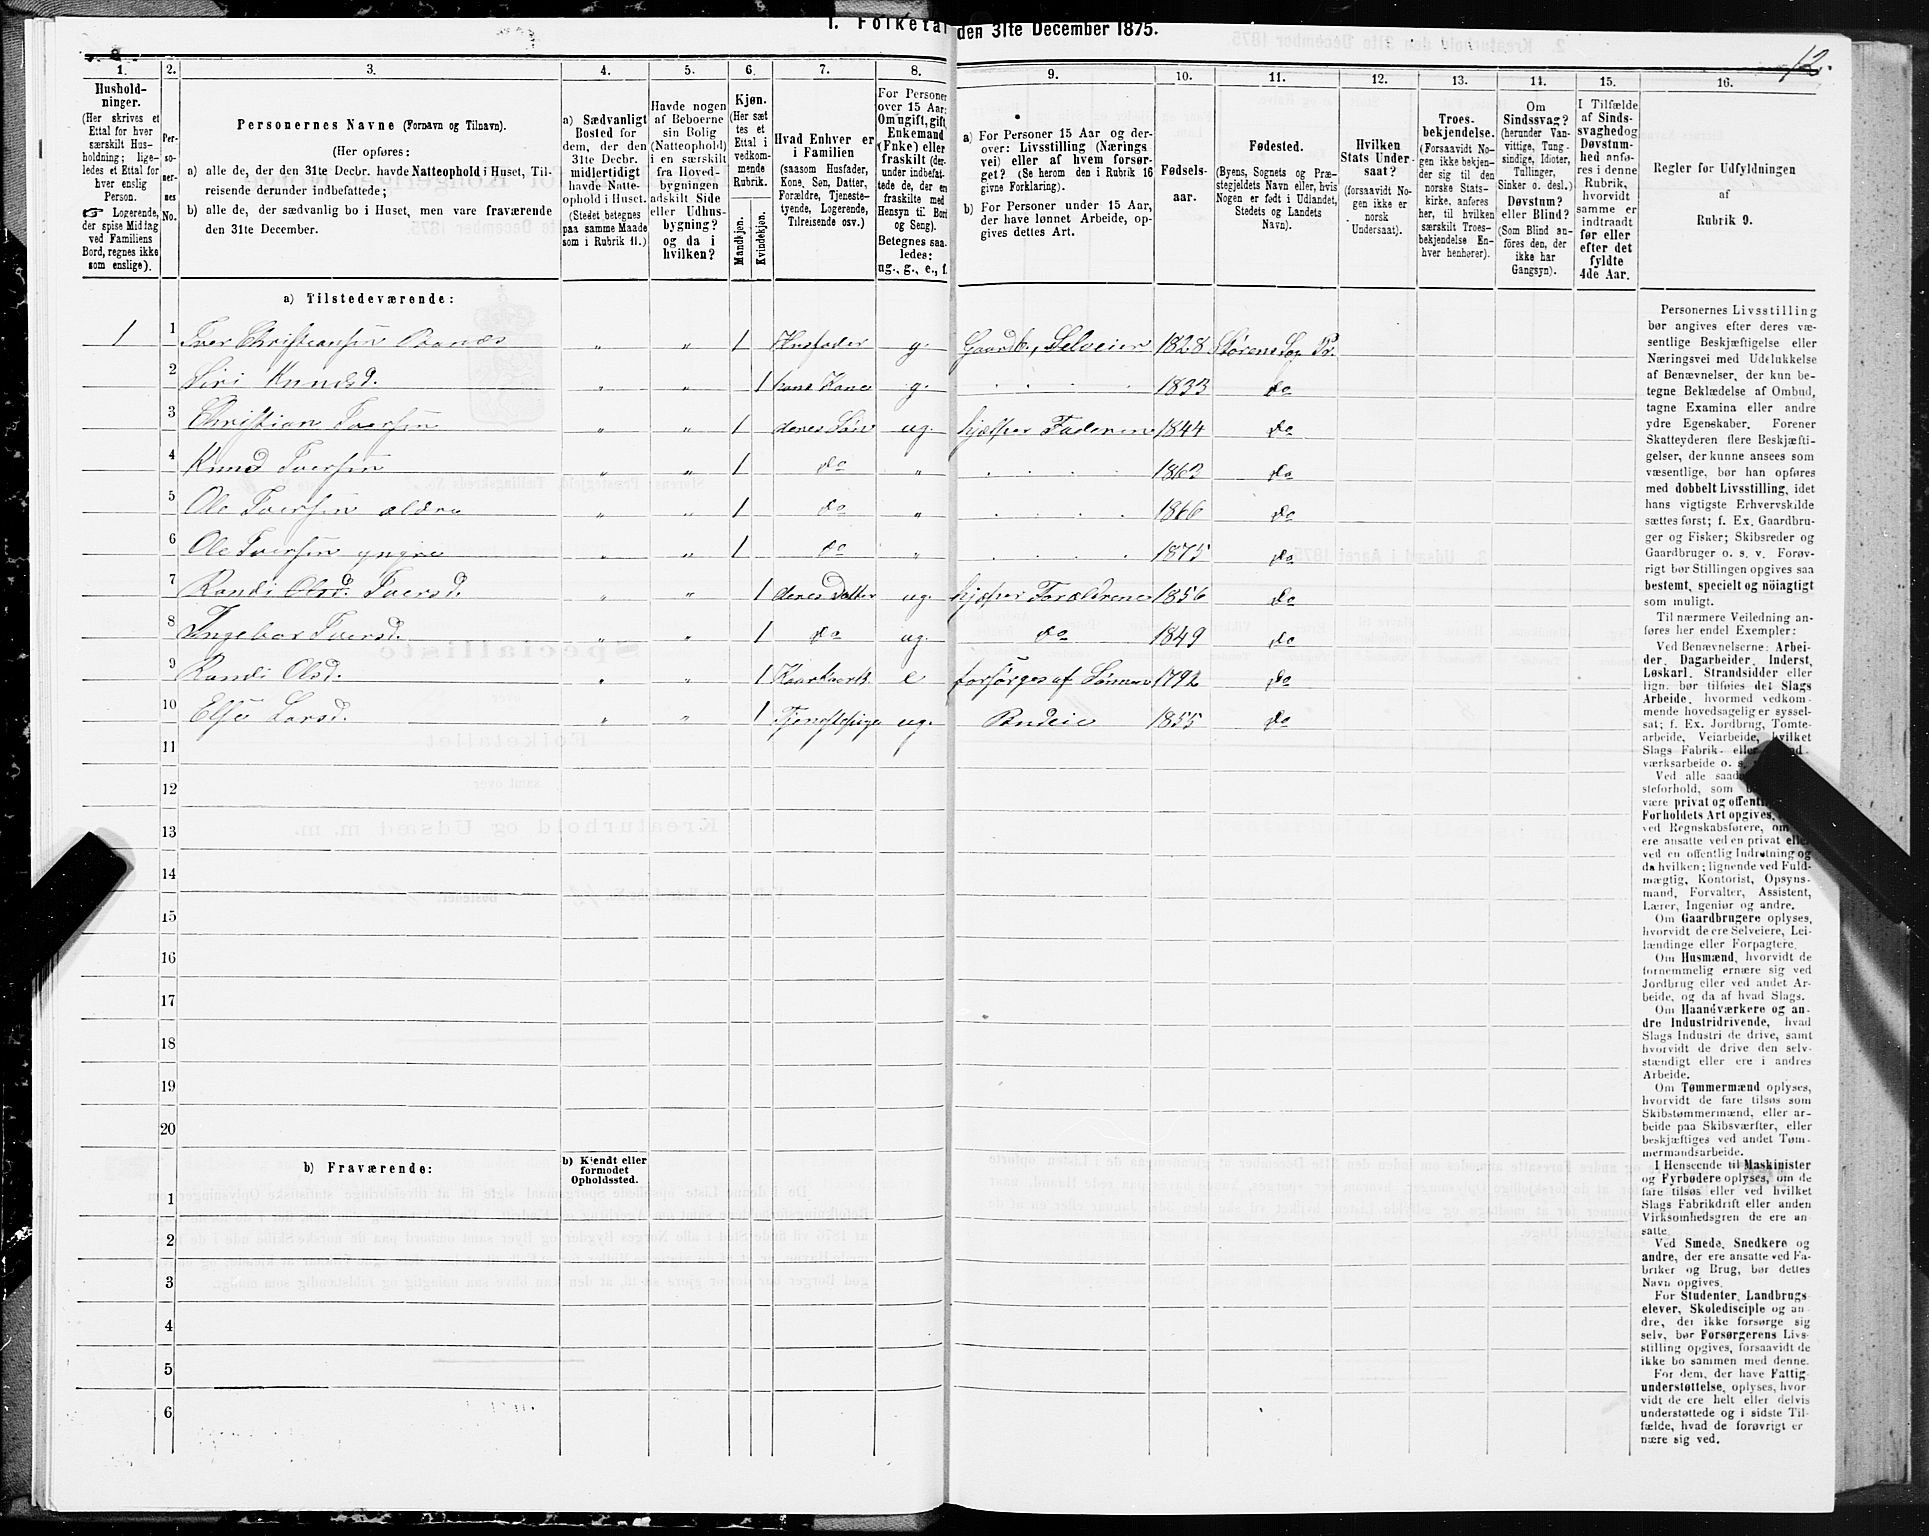 1. Folketal den 31te December 1875.
12.
1.
2.
3.
4.
5.
6.
7.
8.
9.
10.
11.
12.
13.
14.
15.
16.
Hushold-
ninger.
(Her skrives et
Ettal for hver
særskilt Hus-
holdning; lige-
ledes et Ettal for
hver enslig
Person.
☞ Logerende,
der spise Middag
ved Familiens
Bord, regnes ikke
som enslige).
Per-
so-
ner-
nes
No.
Personernes Navne (Fornavn og Tilnavn).
(Her opføres:
a) alle de, der den 31te Decbr. havde Natteophold i Huset, Til-
reisende derunder indbefattede;
b) alle de, der sædvanlig bo i Huset, men vare fraværende
den 31te December.
a) Sædvanligt
Bosted for
dem, der den
31te Decbr.
midlertidigt
havde Natte-
ophold i Huset.
(Stedet betegnes
paa samme Maade
som i Rubrik 11.)
Havde nogen
af Beboerne
sin Bolig
(Natteophold)
i en særskilt
fra Hoved-
bygningen
adskilt Side
eller Udhus-
bygning?
og da i
hvilken?
Kjøn.
(Her sæt
tes et
Ettal i
vedkom-
mende
Rubrik.
Mandkjøn.
Kvindekjøn.
Hvad Enhver er
i Familien
(saasom Husfader,
Kone, Søn, Datter,
Forældre, Tjeneste-
tyende, Logerende,
Tilreisende osv.)
For Personer
over 15 Aar:
Om ugift, gift,
Enkemand
(Enke) eller
fraskilt (der-
under indbefat-
tede de, der ere
fraskilte med
Hensyn til Bord
og Seng).
Betegnes saa-
ledes:
ug., g., e., f.
a) For Personer 15 Aar og der-
over: Livsstilling (Nærings
vei) eller af hvem forsør-
get? (Se herom den i Rubrik 16
givne Forklaring).
b) For Personer under 15 Aar,
der have lønnet Arbeide, op-
gives dettes Art.
Fødsels-
aar.
Fødested.
(Byens, Sognets og Præ-
stegjeldets Navn eller, hvis
Nogen er født i Udlandet,
Stedets og Landets
Navn).
Hvilken
Stats Under-
saat?
(forsaavidt No-
gen ikke er
norsk
Undersaat).
Troes-
bekjendelse.
(Forsaavidt No-
gen ikke bekjen-
der sig til den
norske Stats-
kirke, anføres
her, til hvilken
særskilt Troes-
bekjendelse En-
hver henhører).
Om
Sindssvag?
(herunder Van-
vittige, Tung-
sindige, Idioter,
Tullinger,
Sinker o. desl.)
Døvstum?
eller Blind?
(Som Blind an-
føres den, der
ikke har
Gangsyn).
I Tilfælde
af Sinds-
svaghed og
Døvstum-
hed anfø-
res i denne
Rubrik,
hvorvidt
samme er
indtraadt
før eller
efter det
fyldte
4de Aar.
Regler for Udfyldningen
af
Rubrik 9.
a) Tilstedeværende:
1 1 Iver Christiansen " " 1 Husfader g. Gaardb., Selveier 1828 Störens Sog Pr.
2 Siri Knudsd. " " 1 hans Kone g. 1833 do
3 Christian Iversen " " 1 deres Sön ug. hjælper Faderen 1844 do
4 Knud Iversen " " 1 do " 1863 do
5 Ole Iversen ældre " " 1 do " 1866 do
6 Ole Iversen yngre " " 1 do " 1875 do
7 Randi Olsd. Iversd. " " 1 deres Datter ug. hjælper Forældrene 1856 do
8 Ingebor Iversd. " " 1 do ug. do 1849 do
9 Randi Olsd. " " 1 e forsörges af Sönnen 1792 do
10 Else Larsd. " " 1 Tjenestepige ug. Budeie 1855 do
11
12
13
14
15
16
17
18
19
20
b) Fraværende:
b) Kjendt eller
formodet
Opholdssted.
1
2
3
4
5
6
Personernes Livsstilling
bør angives efter deres væ-
sentlige Beskjæftigelse eller
Næringsvei med Udelukkelse
af Benævnelser, der kun be-
tegne Beklædelse af Ombud,
tagne Examina eller andre
ydre Egenskaber. Forener
Skatteyderen flere Beskjæfti-
gelser, der kunne ansees som
væsentlige, bør han opføres
med dobbelt Livsstilling, idet
hans vigtigste Erhvervskilde
sættes først; f. Ex. Gaardbru-
ger og Fisker; Skibsreder og
Gaardbruger o. s. v. Forøv-
rigt bør Stillingen opgives saa
bestemt, specielt og nöiagtigt
som muligt.
Til nærmere Veiledning an-
føres her endel Exempler:
Ved Benævnelserne: Arbei-
der, Dagarbeider, Inderst,
Løskarl, Strandsidder eller
lign. bør tilføies det Slags
Arbeide, hvormed vedkom-
mende hovedsagelig er syssel-
sat; f. Ex. Jordbrug, Tomte-
arbeide, Veiarbeide, hvilket
Slags Fabrik- eller
værksarbeide o. s.
Ved alle saad
steforhold, som
være privat og offent
Forholdets Art opgives,
ved Regnskabsførere, om
ere ansatte ved en privat eller
ved en offentlig Indretning og
da hvilken; lignende ved Fuld-
mægtig, Kontorist, Opsyns-
mand, Forvalter, Assistent,
Lærer, Ingeniør og andre.
Om Gaardbrugere oplyses,
hvorvidt de ere Selveiere, Lei-
lændinge eller Forpagtere.
Om Husmænd, hvorvidt de
fornemmelig ernære sig ved
Jordbrug eller ved andet Ar-
beide, og da af hvad Slags.
Om Haandværkere og an-
dre Industridrivende, hvad
Slags Industri de drive, samt
hvorvidt de drive den selv-
stændigt eller ere i andres
Arbeide.
Om Tømmermænd oplyses,
hvorvidt de fare tilsøs som
Skibstømmermænd, eller ar-
beide paa Skibsværfter, eller
beskjæftiges ved andet Tøm-
mermandsarbeide.
I Henseende til Maskinister
og Fyrbødere oplyses, om de
fare tilsøs eller ved hvilket
Slags Fabrikdrift eller anden
Virksomhedsgren de ere an-
satte.
Ved Smede, Snedkere og
andre, der ere ansatte ved Fa-
briker og Brug, bør dettes
Navn opgives.
For Studenter, Landbrugs-
elever, Skoledisciple og an-
dre, der ikke forsørge sig
selv, bør Forsørgerens Livs-
stilling opgives, forsaavidt de
ikke bo sammen med denne.
For dem, der have Fattig-
understøttelse, oplyses, hvor
vidt de ere helt eller delvis
understøttede og i sidste Til-
fælde, hvad de forøvrigt er-
nære sig ved.